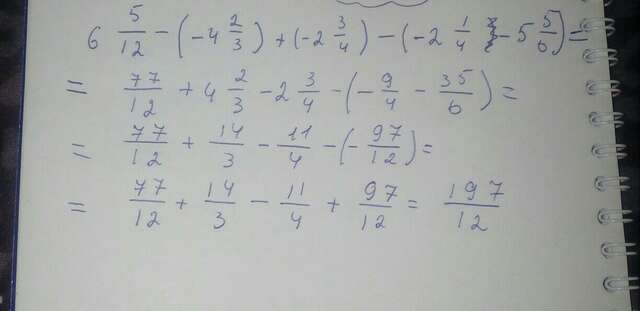 6 5/12 - (-4 2/3) + (-2 3/4) - (-2 1/4 - 5 5/6) =
= 77/12 + 4 2/3 - 2 3/4 - (-9/4 - 35/6) =
= 77/12 + 14/3 - 11/4 - (-97/12) =
= 77/12 + 14/3 - 11/4 + 97/12 = 197/12